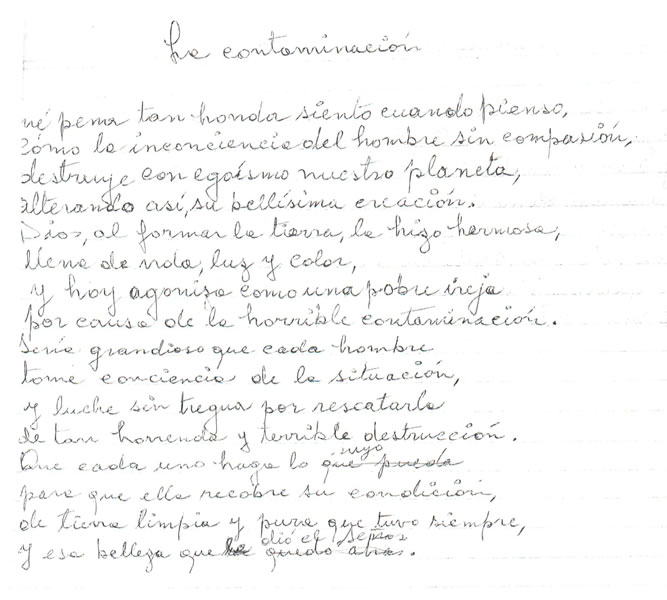 La contaminación
ué pena tan honda siento cuando pienso,
cómo la inconciencia del hombre sin compasión,
destruye con egoísmo nuestro planeta,
alterando así, su bellísima creación.
Dios, al formar la tierra, la hizo hermosa,
llena de vida, luz y color,
y hoy agoniza como una pobre vieja
por causa de la horrible contaminación.
Sería grandioso que cada hombre
tome conciencia de la situación,
y luche sin tregua por rescatarla
de tan horrenda y terrible destrucción.
Que cada uno haga lo que pueda suyo
para que ella recobre su condición,
de tierra limpia y pura que tuvo siempre,
y esa belleza que quedo dió el Señor.